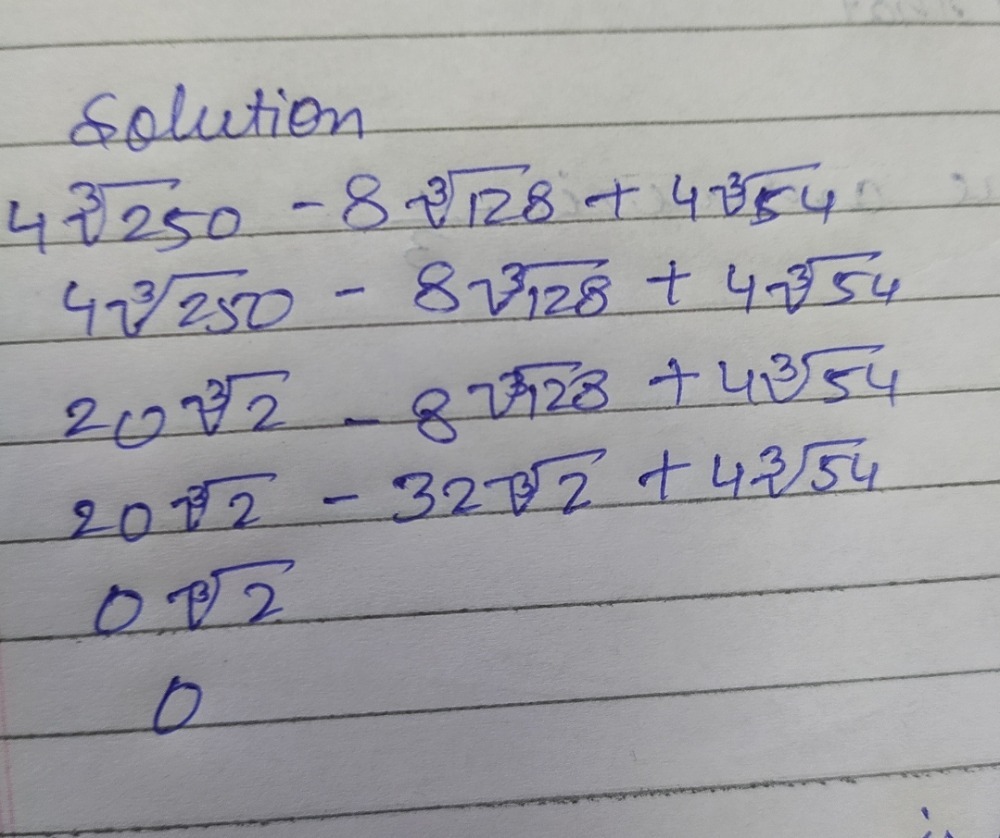 Solution
4∛250 - 8∛128 + 4∛54
4∛250 - 8∛128 + 4∛54
20∛2 - 8∛128 + 4∛54
20∛2 - 32∛2 + 4∛54
0∛2
0